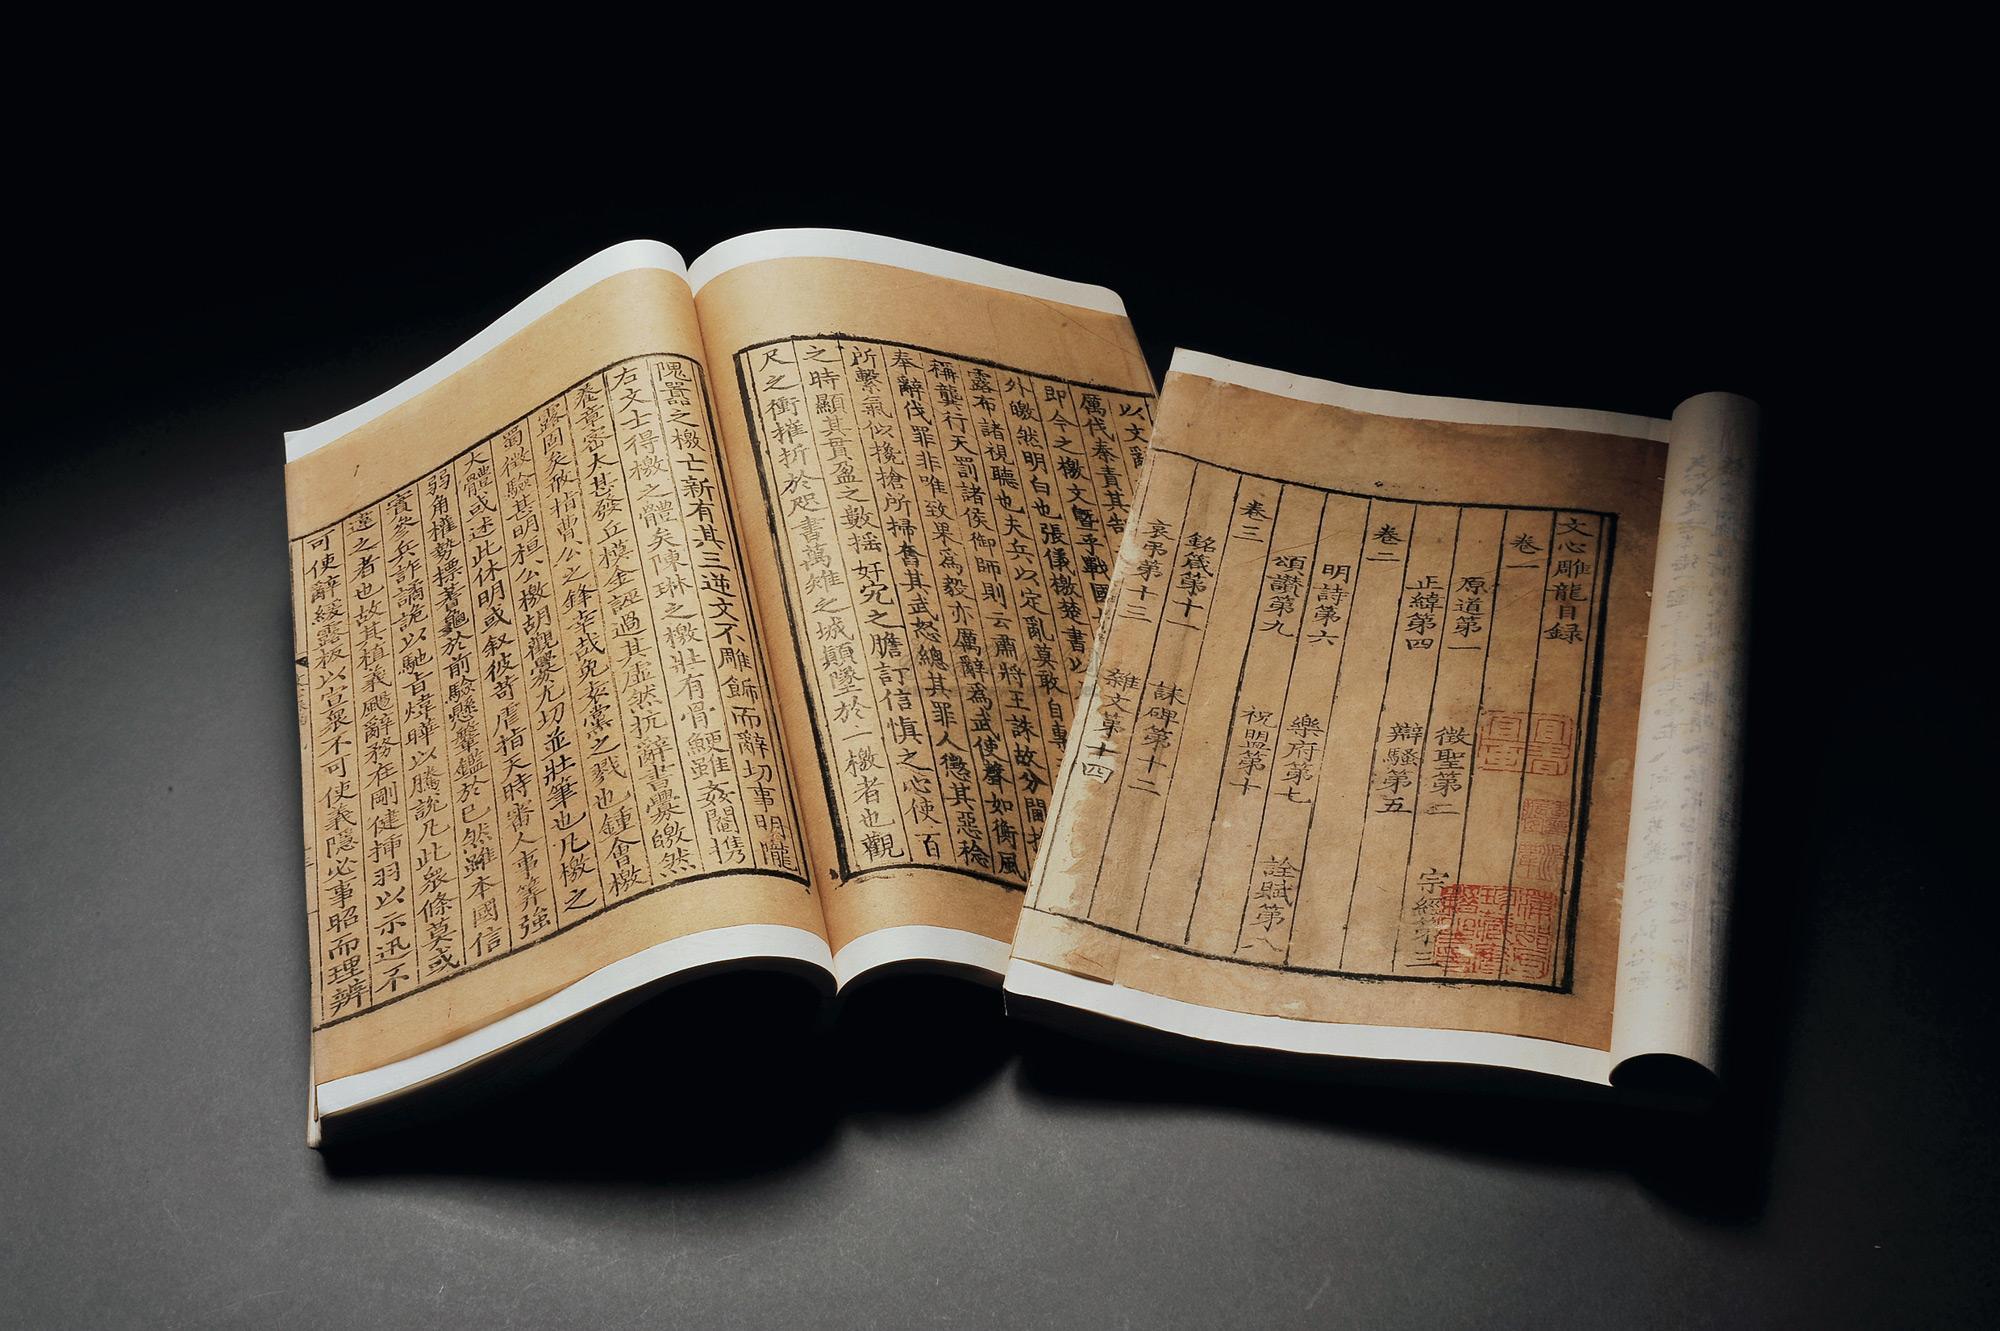 文心雕龍目錄
卷一
原道第一 徵聖第二 宗經第三
正緯第四 辯騷第五
卷二
明詩第六 樂府第七 詮賦第八
頌讚第九 祝盟第十
卷三
銘箴第十一 誄碑第十二
哀弔第十三 雜文第十四
以文辭
厲伐秦責其告
即今之檄文暨乎戰國
外皦然明白也張儀檄楚書以
露布諸視聽也夫兵以定亂莫敢自專
稱龔行天罰諸侯御師則云肅將王誅故分閫
奉辭伐罪非唯致果為毅亦厲辭為武使聲如衝風
所繫氣似欃槍所掃奮其武怒總其罪人懲其惡稔
之時顯其貫盈之數揺奸宄之膽訂信慎之心使百
尺之衝摧折於咫書萬雉之城顛墜於一檄者也觀
隗囂之檄亡新有其三逆文不雕飾而辭切事明隴
右文士得檄之體矣陳琳之檄壯有骨鯁雖姦閹携
養章密太甚發丘模金誣過其虐然抗辭書釁皦然
露固矣敢指曹公之鋒幸哉免袁黨之戮也鍾會檄
蜀徵驗甚明桓公檄胡觀釁尤切並壯筆也凡檄之
大體或述此休明或叙彼苛虐指天時審人事筭強
弱角權勢摽蓍龜於前驗懸鞶鑑於已然雖本國信
實參兵詐譎詭以馳旨煒曄以騰說凡此衆條莫或
違之者也故其植義颺辭務在剛健插羽以示迅不
可使辭緩露板以宣衆不可使義隱必事昭而理辨